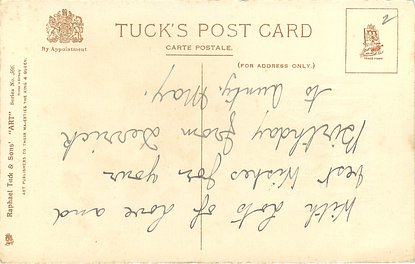 TUCK'S POST CARD
CARTE POSTALE.
(FOR ADDRESS ONLY.)
By Appointment
TRADE MARK
2
Raphael Tuck & Sons' "ART" Series No.
ART PUBLISHERS TO THEIR MAJESTIES THE KING & QUEEN.
With Lots of love and
best Wishes for your
Birthday from Derrick
to Aunty. May.